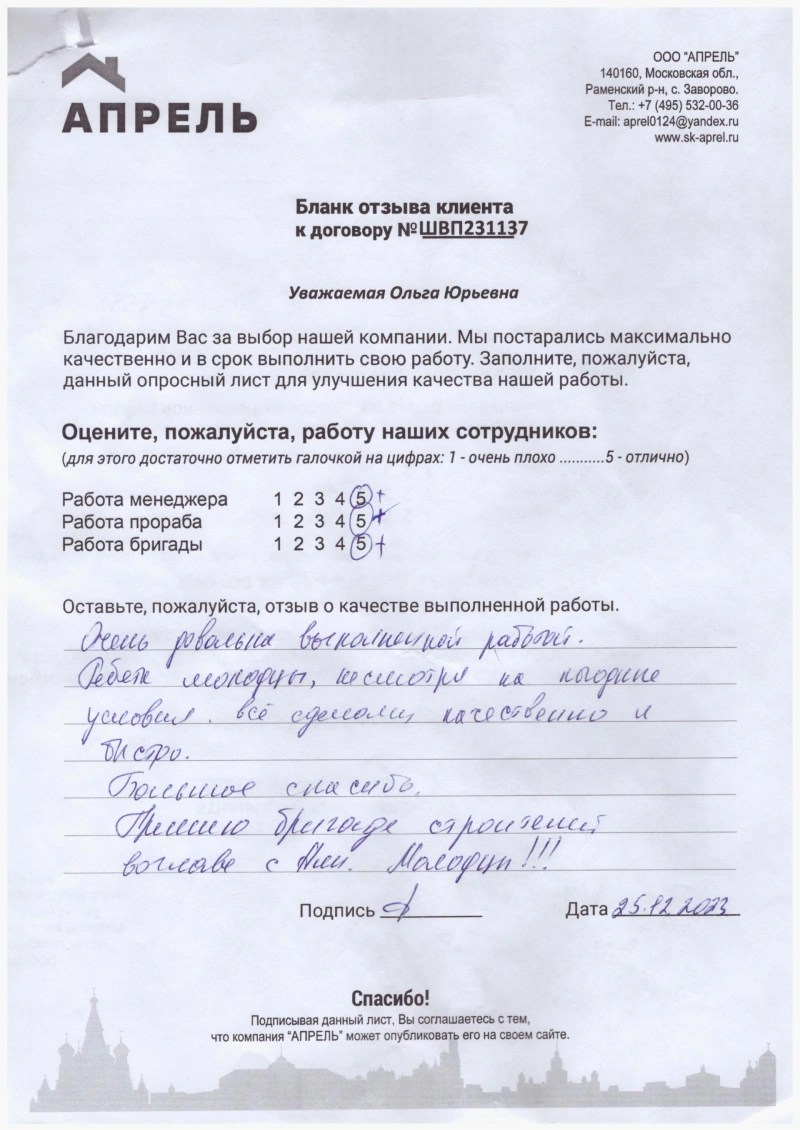 АПРЕЛЬ
ООО "АПРЕЛЬ"
140160, Московская обл.,
Раменский р-н, с. Заворово.
Тел.: +7 (495) 532-00-36
E-mail: aprel0124@yandex.ru
www.sk-aprel.ru
Бланк отзыва клиента
к договору №ШВП231137
Уважаемая Ольга Юрьевна
Благодарим Вас за выбор нашей компании. Мы постарались максимально
качественно и в срок выполнить свою работу. Заполните, пожалуйста,
данный опросный лист для улучшения качества нашей работы.
Оцените, пожалуйста, работу наших сотрудников:
(для этого достаточно отметить галочкой на цифрах: 1 - очень плохо ...........5 - отлично)
Работа менеджера 1 2 3 4 5 +
Работа прораба 1 2 3 4 5 +
Работа бригады 1 2 3 4 5 +
Оставьте, пожалуйста, отзыв о качестве выполненной работы.
Очень довольна выполненной работой.
Ребята молодцы, несмотря на погодные
условия. всё сделали качественно и
быстро.
Большое спасибо.
бригаде строителей
воглаве с Али. Молодцы!!!
Подпись
Дата 25.12.2023
Спасибо!
Подписывая данный лист, Вы соглашаетесь с тем,
что компания "АПРЕЛЬ" может опубликовать его на своем сайте.